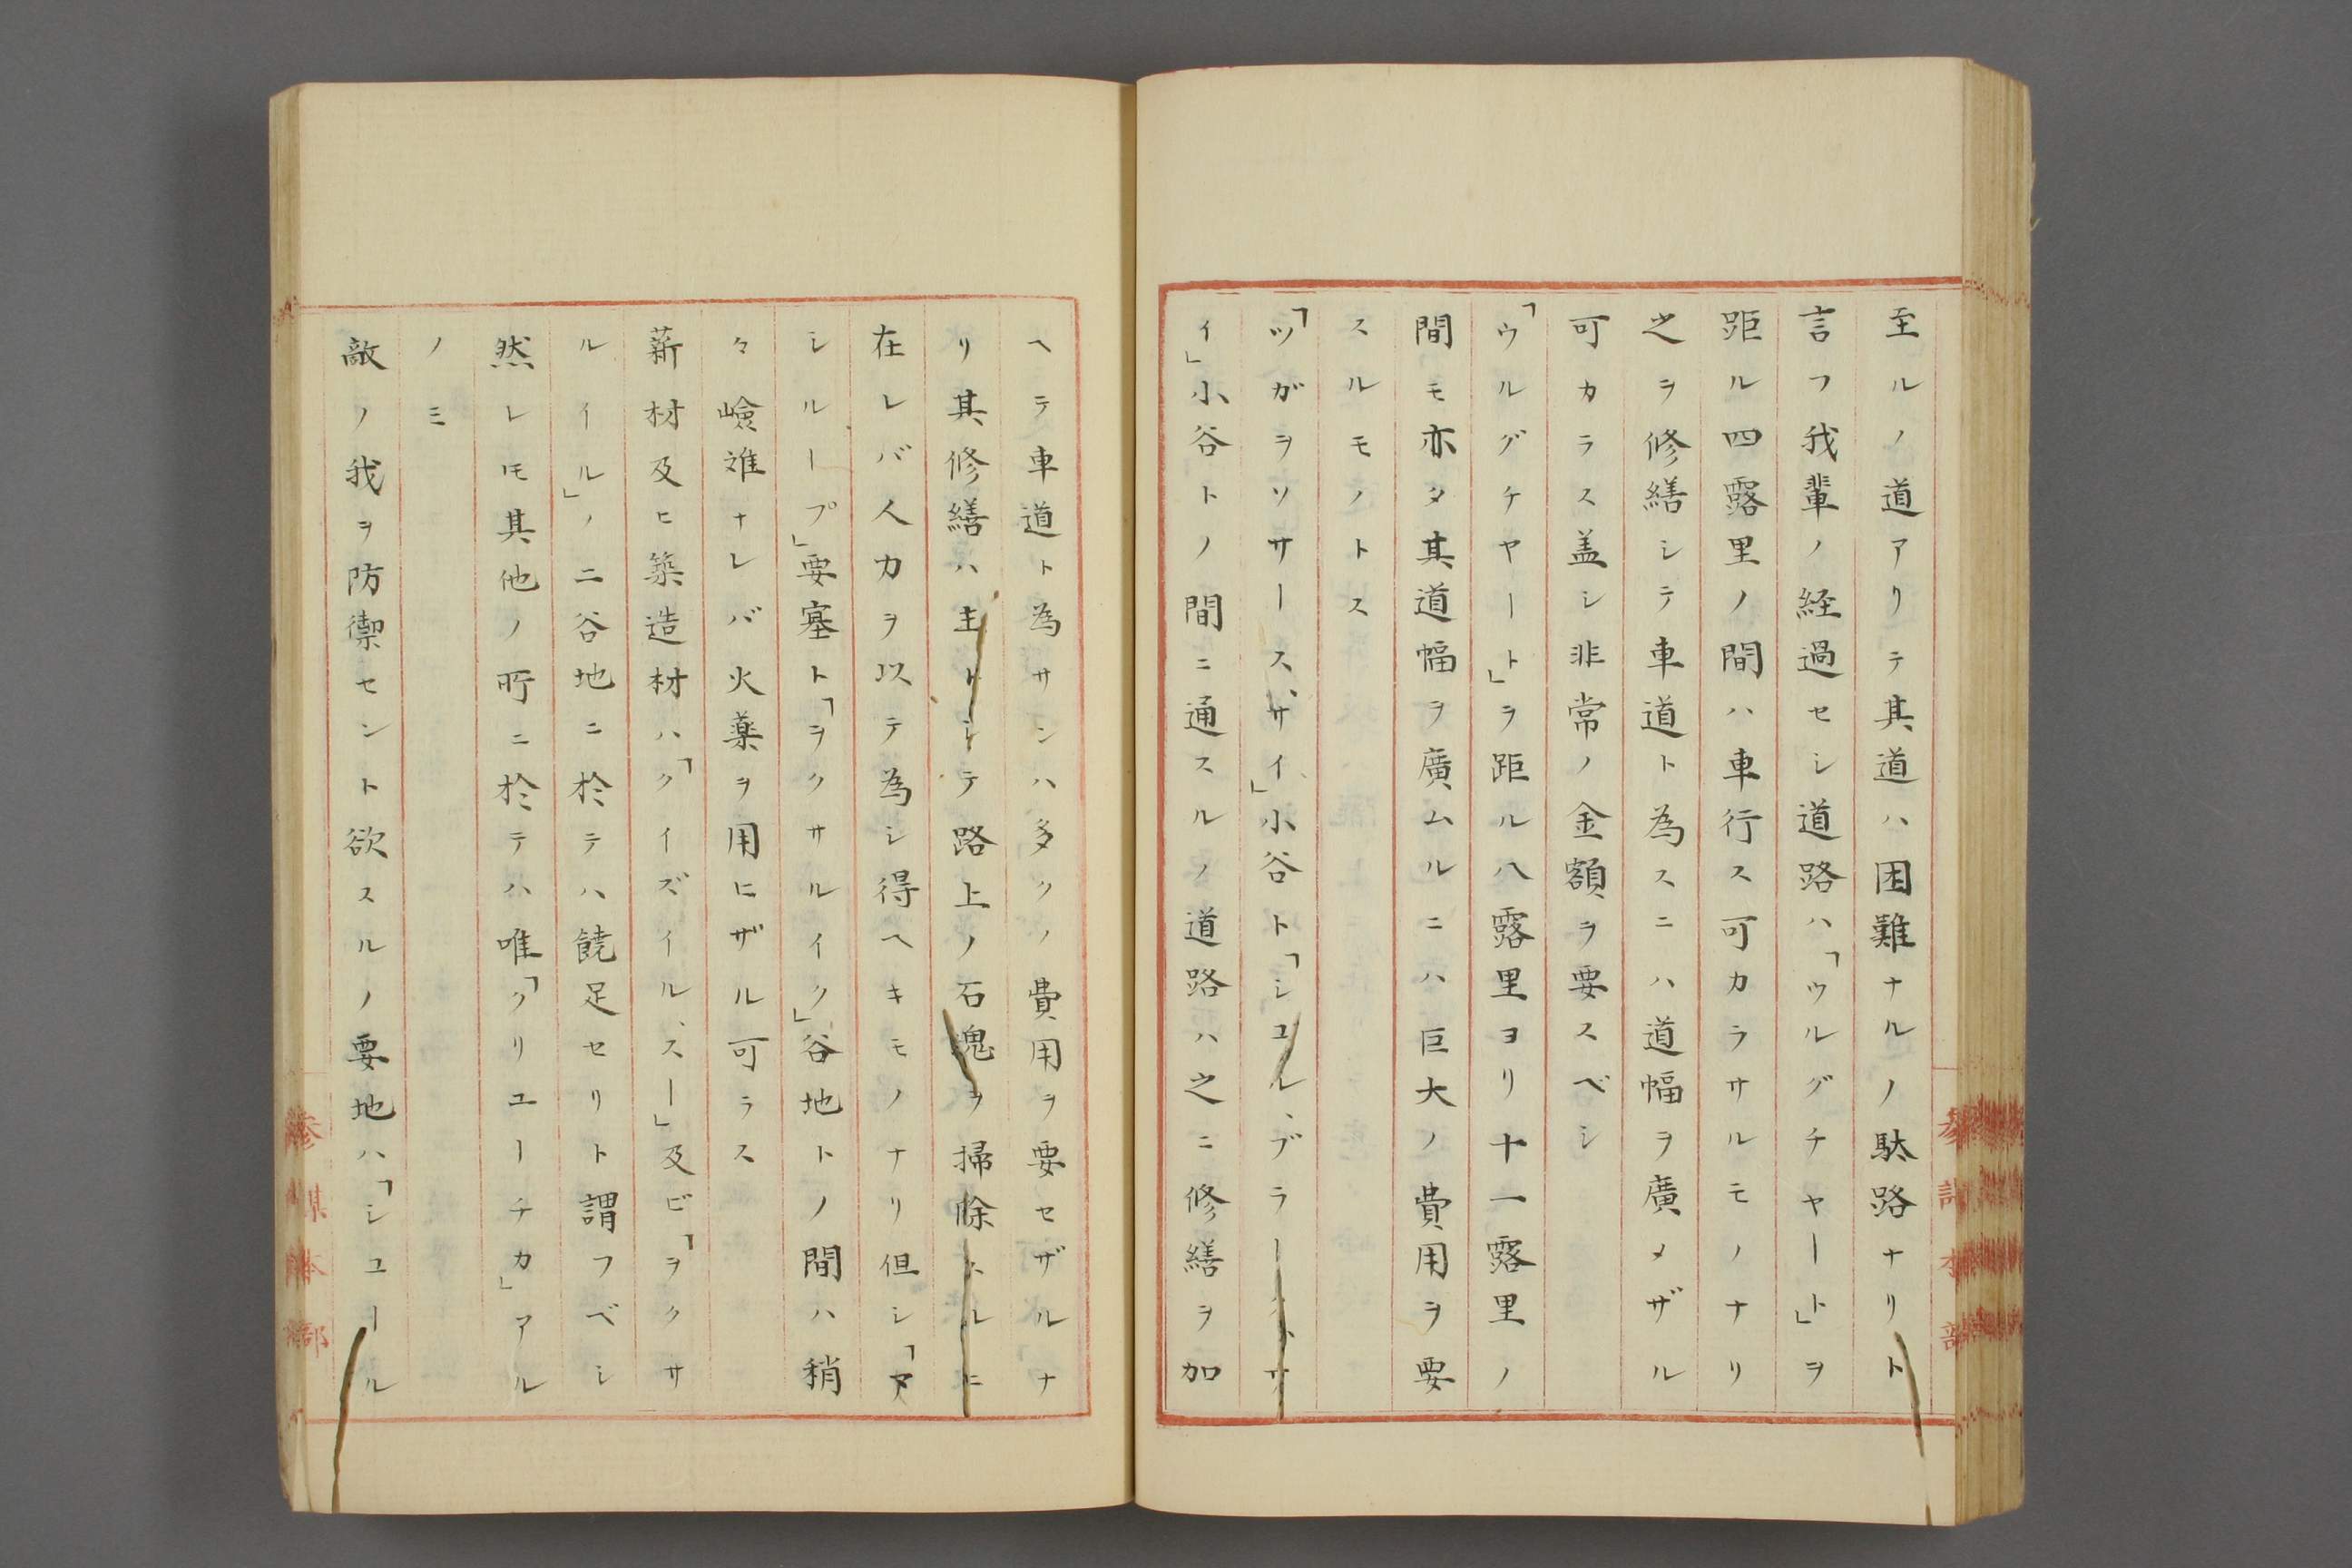 至ルノ道アリテ其道ハ困難ナルノ駄路ナリト
言フ我輩ノ経過セシ道路ハ「ウルグチヤート」ヲ
距ル四露里ノ間ハ車行ス可カラサルモノナリ
之ヲ修繕シテ車道ト為スニハ道幅ヲ廣メザル
可カラス盖シ非常ノ金額ヲ要スベシ
「ウルグチヤート」ヲ距ル八露里ヨリ十一露里ノ
間モ亦タ其道幅ヲ廣ムルニハ巨大ノ費用ヲ要
スルモノトス
「ツガヲソサース、サイ」小谷ト「シユル、ブラークサ
イ」小谷トノ間ニ通スルノ道路ハ之ニ修繕ヲ加
ヘテ車道ト為サンハ多クノ費用ヲ要セザルナ
リ其修繕ハ主トシテ路上ノ石塊ヲ掃除スルニ
在レバ人力ヲ以テ為シ得ヘキモノナリ但シ「タ
シループ」要塞ト「ヲクサルイク」谷地トノ間ハ稍
々嶮难ナレバ火薬ヲ用ヒザル可ラス
薪材及ヒ築造材ハ「クイズイル、スー」及ビ「ヲクサ
ルイール」ノ二谷地ニ於テハ饒足セリト謂フベシ
然レ𪜈其他ノ所ニ於テハ唯「クリユーチカ」アル
ノミ
敵ノ我ヲ防禦セント欲スルノ要地ハ「シユール
參謀本部
參謀本部